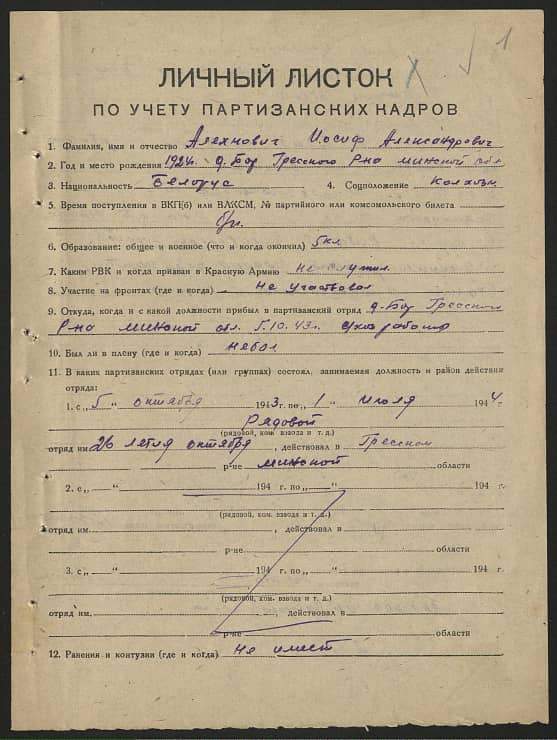 1
ЛИЧНЫЙ ЛИСТОК
ПО УЧЕТУ ПАРТИЗАНСКИХ КАДРОВ
1. Фамилия, имя и отчество Алехнович Иосиф Александрович
2. Год и место рождения 1924 г. д. Бор Гресского р-на минской обл
3. Национальность Белорус 4. Соцположение колхозн.
5. Время поступления в ВКП(б) или ВЛКСМ, № партийного или комсомольского билета
б/п.
6. Образование: общее и военное (что и когда окончил) 5 кл
7. Каким РВК и когда призван в Красную Армию не служил
8. Участие на фронтах (где и когда) не участвовал
9. Откуда, когда и с какой должности прибыл в партизанский отряд д. Бор Гресского
р-на минской обл. 5.10.43 г.
10. Был ли в плену (где и когда) небол
11. В каких партизанских отрядах (или группах) состоял, занимаемая должность и район действий
отряда:
1. с „5“ октября 1943 г. по „1“ июля 1944 г.
Рядовой
(рядовой, ком. взвода и т. д.)
отряд им 26 летия октября, действовал в Гресском
р-не минской области
2. с „ “ 194 г. по „ “ 194 г.
(рядовой, ком. взвода и т. д.)
отряд им. , действовал в
р-не области
3. с „ “ 194 г. по „ “ 194 г.
(рядовой, ком. взвода и т. д.)
отряд им. , действовал в
р-не области
12. Ранения и контузии (где и когда) Не имеет